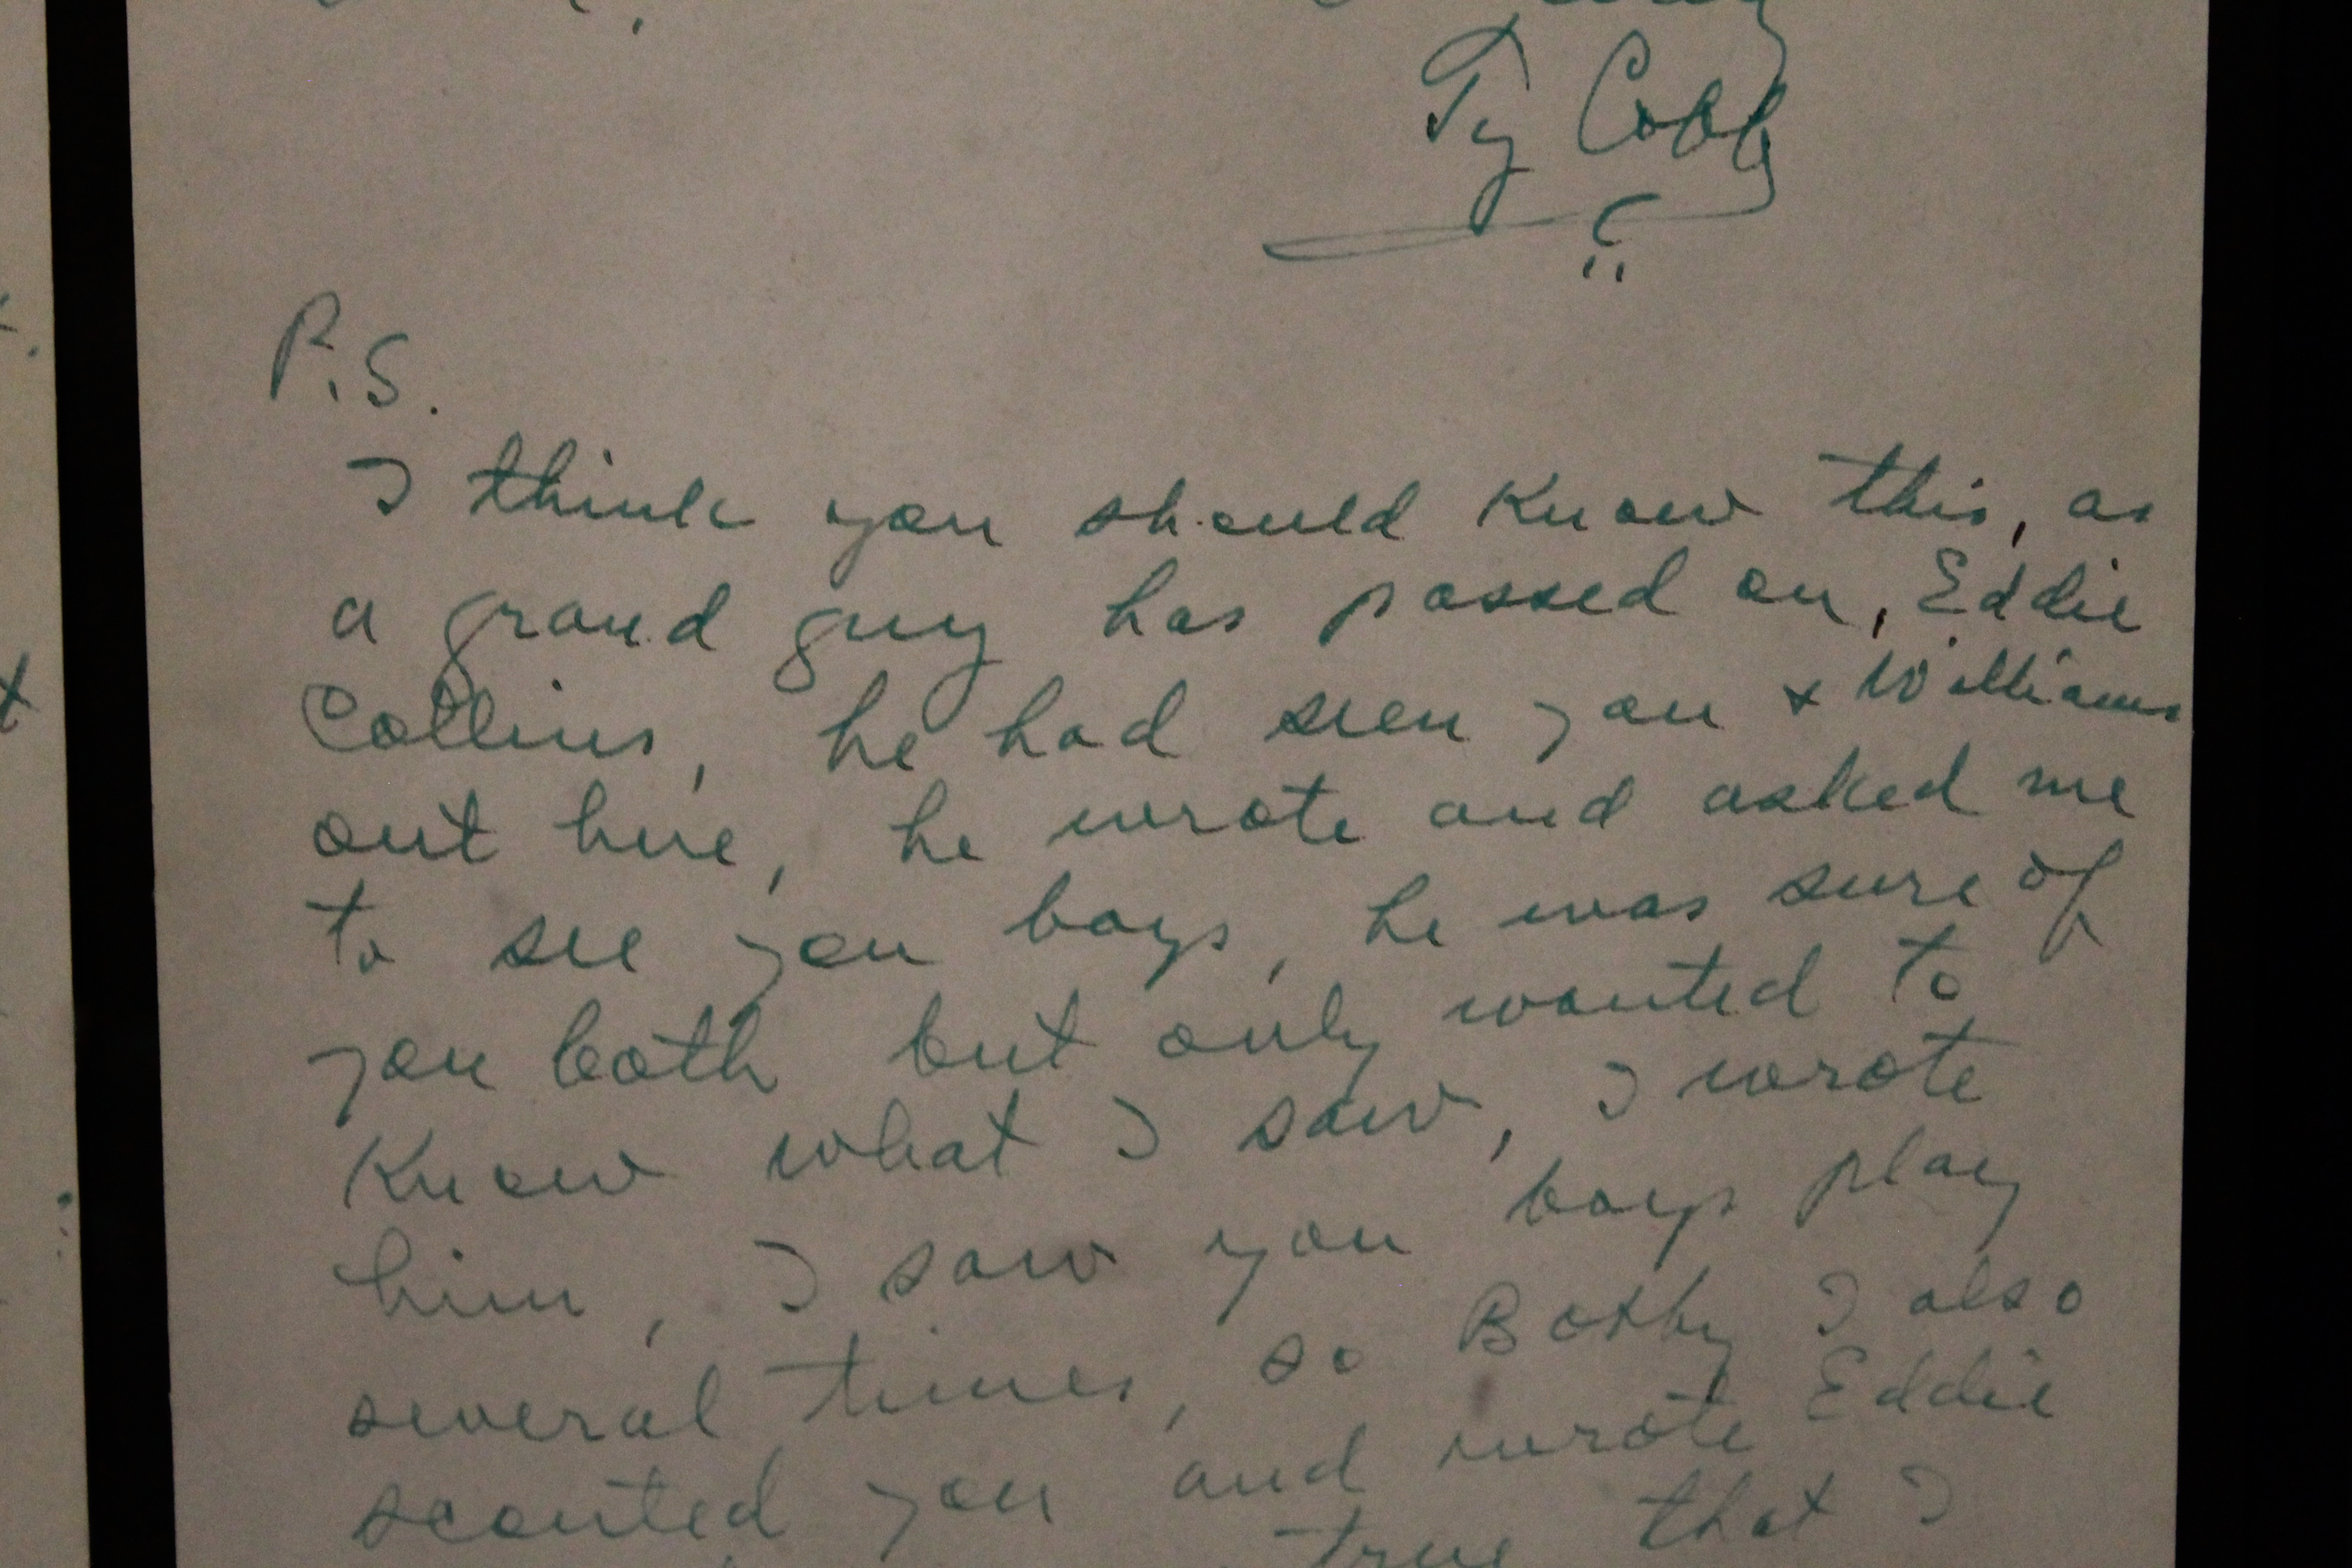 Ty Cobb
P.S.
I think you should know this, as
a grand guy has passed on, Eddie
Collins, he had seen you & Williams
out here, he wrote and asked me
to see you boys, he was sure of
you both but only wanted to
know what I saw, I wrote
him, I saw you boys play
several times, so Bobby I also
scouted you and wrote Eddie
true that I